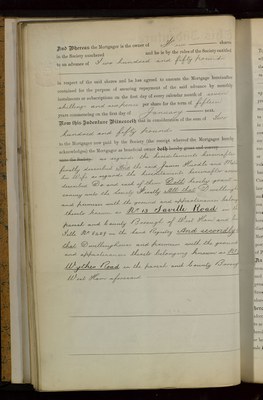 And Whereas the Mortgagor is the owner of Five shares
in the Society numbered and he is by the rules of the Society entitled
to an advance of Two hundred and fifty pounds
in respect of the said shares and he has agreed to execute the Mortgage hereinafter
contained for the purpose of securing repayment of the said advance by monthly
instalments or subscriptions on the first day of every calendar month of seven
shillings and sixpence per share for the term of fifteen
years commencing on the first day of January
Now this Indenture Witnesseth that in consideration of the sum of Two
hundred and fifty pounds
to the Mortgagor now paid by the Society (the receipt whereof the Mortgagor hereby
acknowledges) the Mortgagor as beneficial owner hereby grant and convey
unto the Society as regards the hereditaments
firstly described And the said James and
his Wife as regards the hereditaments
described Do and each of them Doth hereby
unto the Society Firstly All that Dwellinghouse
and premises with the ground and appurtenances
thereto known as No 18 Saville Road in
parish and County Borough of West Ham and
in the Land Registry And secondly
that Dwellinghouse and premises with the ground
and appurtenances thereto belonging known as
Wythes Road in the parish and County Borough
West Ham aforesaid